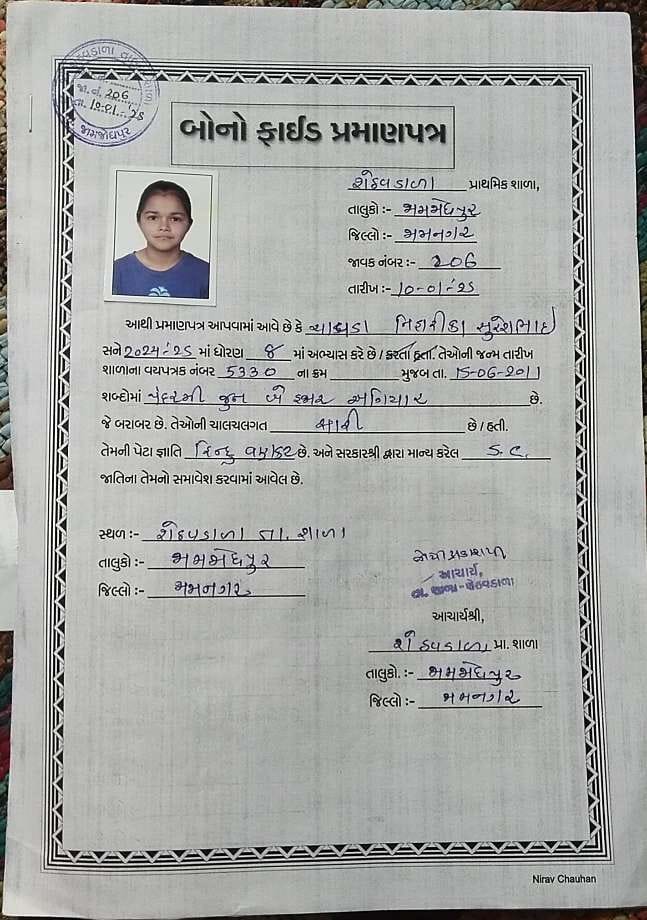 શેઠવડાળા તા. શાળા
જા. નં. 206
તા. 10-01-'25
જામજોધપુર
બોનો ફાઈડ પ્રમાણપત્ર
શેઠવડાળા પ્રાથમિક શાળા,
તાલુકો :- જામજોધપુર
જિલ્લો :- જામનગર
જાવક નંબર :- 206
તારીખ :- 10-01-'25
આથી પ્રમાણપત્ર આપવામાં આવે છે કે ચાવડા સુરેશભાઈ
સને 2024-'25 માં ધોરણ 8 માં અભ્યાસ કરે છે / કરતા હતા. તેઓની જન્મ તારીખ
શાળાના વયપત્રક નંબર 5330 ના ક્રમ મુજબ તા. 15-06-2011
શબ્દોમાં પંદરમી જુન બે હજાર અગિયાર છે.
જે બરાબર છે. તેઓની ચાલચલગત સારી છે / હતી.
તેમની પેટા જ્ઞાતિ હિન્દુ વણકર છે. અને સરકારશ્રી દ્વારા માન્ય કરેલ S.C.
જાતિના તેમનો સમાવેશ કરવામાં આવેલ છે.
સ્થળ :- શેઠવડાળા તા. શાળા
તાલુકો :- જામજોધપુર
જિલ્લો :- જામનગર
આચાર્ય,
તા. શાળા-શેઠવડાળા
આચાર્યશ્રી,
શેઠવડાળા પ્રા. શાળા
તાલુકો. :- જામજોધપુર
જિલ્લો :- જામનગર
Nirav Chauhan